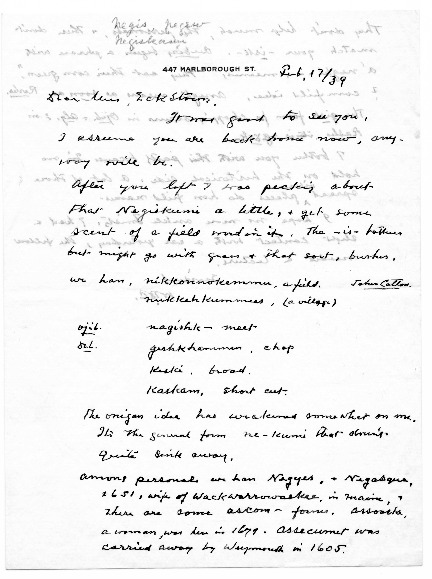 Negis
Negiskami
447 MARLBOROUGH ST.
Feb, 17/39
Dear Mrs. Eckstorm,
It was good to see you,
I assume you are back home now, any-
way will be.
After you left I was pecking about
that Negiskumi a little, & get some
scent of a field word in it. The -is- bothers
but might go with grass & that sort, bushes.
we have, nikkonnokemmu, a field. John Cotton.
nukkehkummees, (a village)
ojib. nagishk - meet
Del. gishkhammen, chop
Kiski, broad.
Kaskam, short cut.
The onigan idea has weakened somewhat on me.
It's the general form ne-kumi that doesn't
quite sink away.
Among personals we have Nagyes, & Negasqua,
1651, wife of Wackwarrowaskee, in Maine, &
there are some ascom- forms.
a woman, was here in 1679. Assecumet was
carried away by Weymouth in 1605.